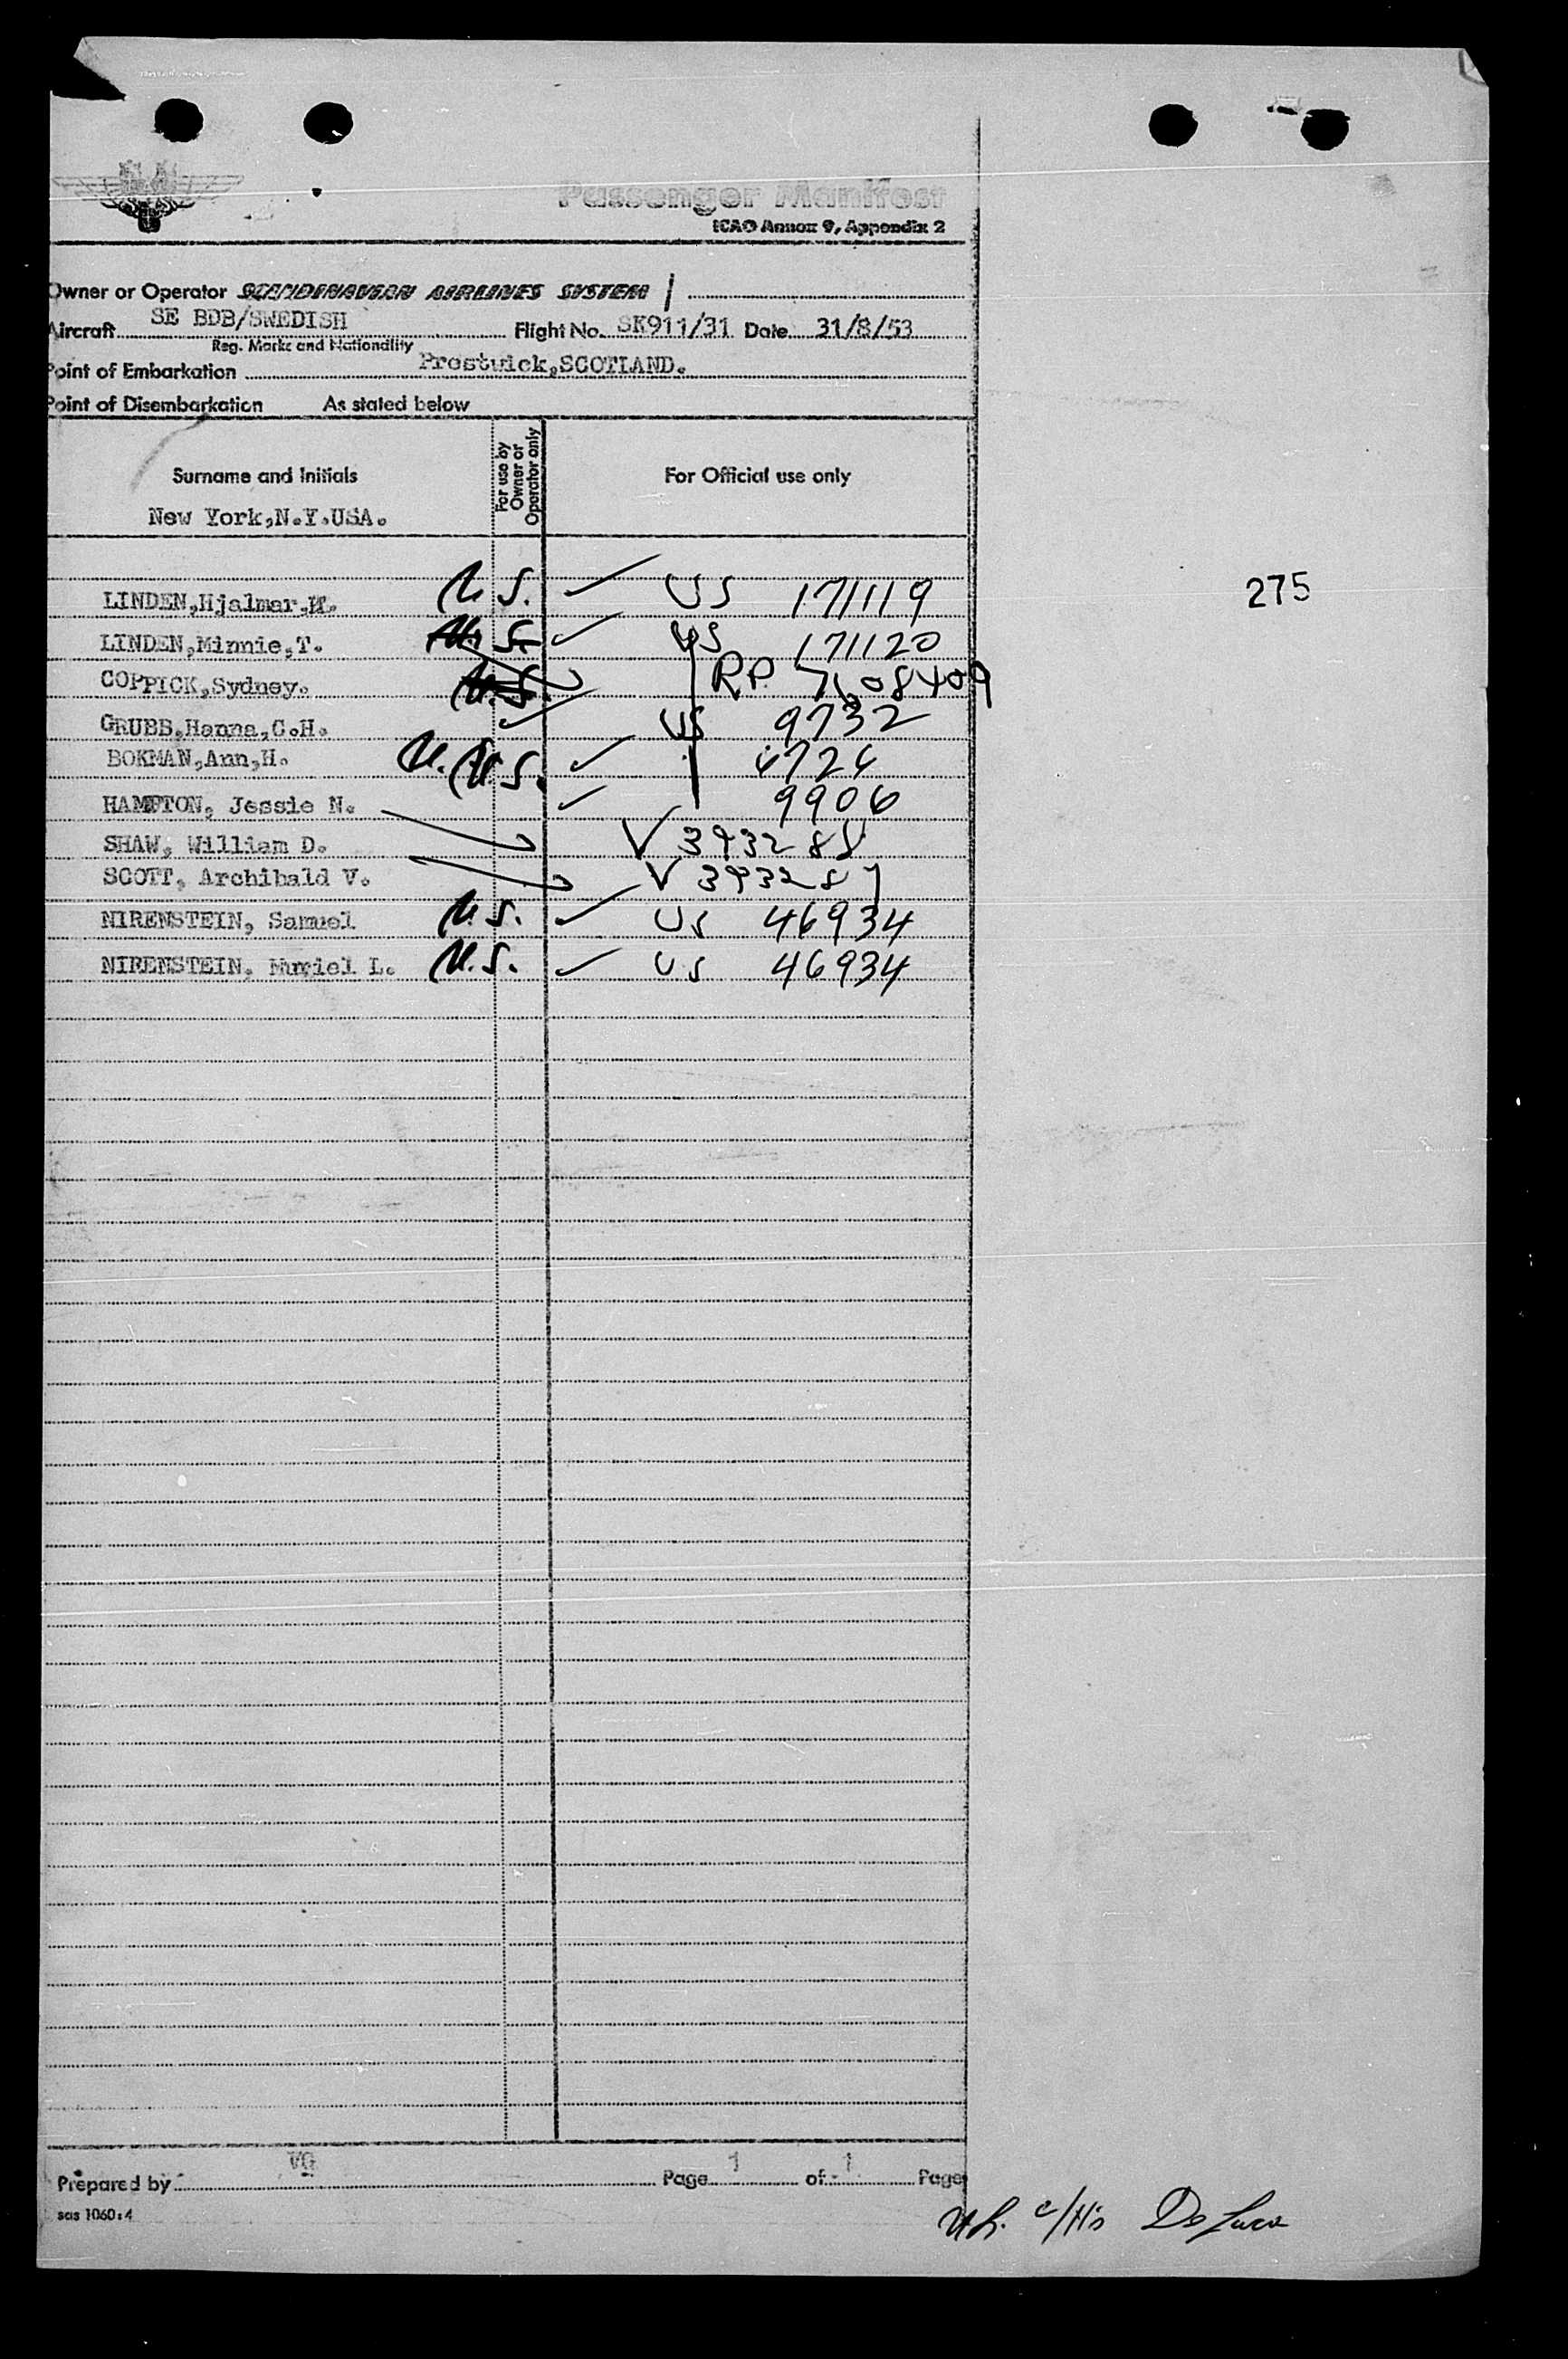 Passenger Manifest
ICAO Annex 9, Appendix 2
Owner or Operator SCANDINAVIAN AIRLINES SYSTEM
Aircraft SE BDB/SWEDISH Flight No. SK911/31 Date 31/8/53
Reg. Marks and Nationality
Point of Embarkation Prestwick,SCOTLAND.
Point of Disembarkation As stated below
Surname and Initials For use by Owner or Operator only For Official use only
New York,N.Y.USA.
LINDEN,Hjalmar, U.S. ✓ US 171119 275
LINDEN,Minnie,T. U.S. ✓ US 171120
COPPICK,Sydney. U.S. RP 7608409
GRUBB,Hanna,C.H. ✓ US 9732
BOKMAN,Ann,H. U. U.S. ✓
HAMPTON, Jessie N. ✓ 9906
SHAW, William D. V 393288
SCOTT, Archibald V. V 393287
NIRENSTEIN, Samuel U.S. ✓ US 46934
NIRENSTEIN, Muriel L. U.S. ✓ US 46934
Prepared by VG Page 1 of 1 Page
sas 1060:4
De Luca